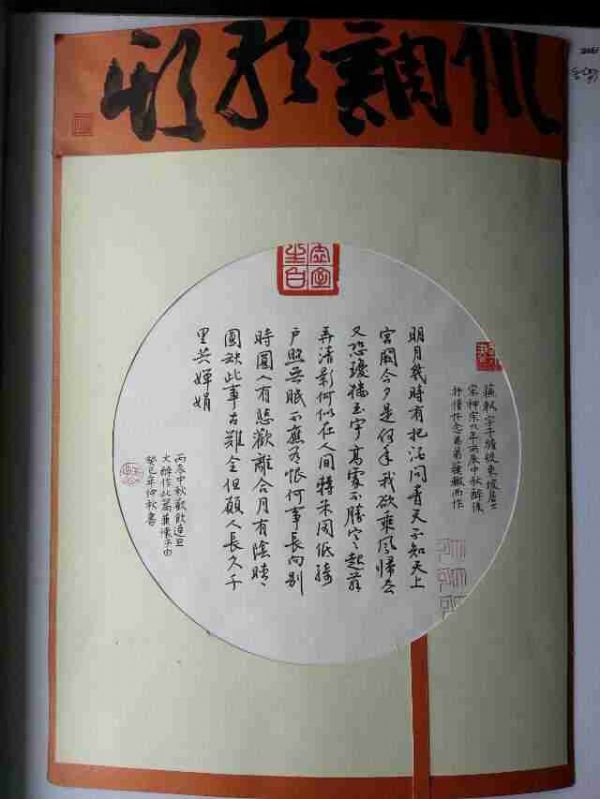 水調歌頭
虛室生白
蘇軾字子瞻號東坡居士
宋神宗九年丙辰中秋醉後
抒情懷念其弟蘇轍而作
明月幾時有把酒問青天不知天上
宮闕今夕是何年我欲乘風歸去
又恐瓊樓玉宇高處不勝寒起舞
弄清影何似在人間轉朱閣低綺
戶照無眠不應有恨何事長向別
時圓人有悲歡離合月有陰晴
圓缺此事古難全但願人長久千
里共嬋娟
丙辰中秋歡飲達旦
大醉作此篇兼懷子由
癸巳年仲秋書